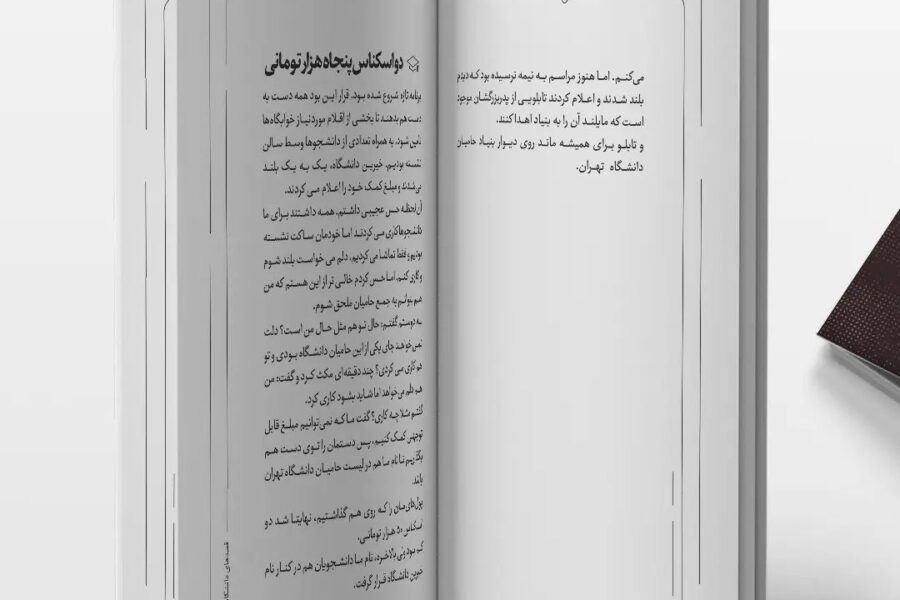 می‌کنم. اما هنوز مراسم به نیمه نرسیده بود که دیدم
بلند شدند و اعلام کردند تابلویی از پدربزرگشان موجود
است که مایلند آن را به بنیاد اهدا کنند.
و تابلو برای همیشه ماند روی دیوار بنیاد حامیان
دانشگاه تهران.
دو اسکناس پنجاه هزار تومانی
برنامه تازه شروع شده بود. قرار این بود همه دست به
دست هم بدهند تا بخشی از اقلام مورد نیاز خوابگاه‌ها
تامین شود. به همراه تعدادی از دانشجوها وسط سالن
نشسته بودیم. خیرین دانشگاه، یک به یک بلند
می‌شدند و مبلغ کمک خود را اعلام می کردند.
آن لحظه حس عجیبی داشتم. همه داشتند برای ما
دانشجوها کاری می کردند اما خودمان ساکت نشسته
بودیم و فقط تماشا می کردیم. دلم می خواست بلند شوم
و کاری کنم. اما حس کردم خالی تر از این هستم که من
هم بتوانم به جمع حامیان ملحق شوم.
به دوستم گفتم: حال تو هم مثل حال من است؟ دلت
نمی‌خواهد جای یکی از این حامیان دانشگاه بودی و تو
هم کاری می کردی؟ چند دقیقه‌ای مکث کرد و گفت: من
هم دلم می‌خواهد اما شاید بشود کاری کرد.
گفتم مثلا چه کاری؟ گفت ما که نمی‌توانیم مبلغ قابل
توجهی کمک کنیم، پس دستمان را توی دست هم
بگذاریم تا نام ما هم در لیست حامیان دانشگاه تهران
باشد.
پول‌های‌مان را که روی هم گذاشتیم، نهایتا شد دو
اسکناس ۵۰ هزار تومانی.
کم بود ولی بالاخره، نام ما دانشجویان هم در کنار نام
خیرین دانشگاه قرار گرفت.
قصه‌های دانشگاه